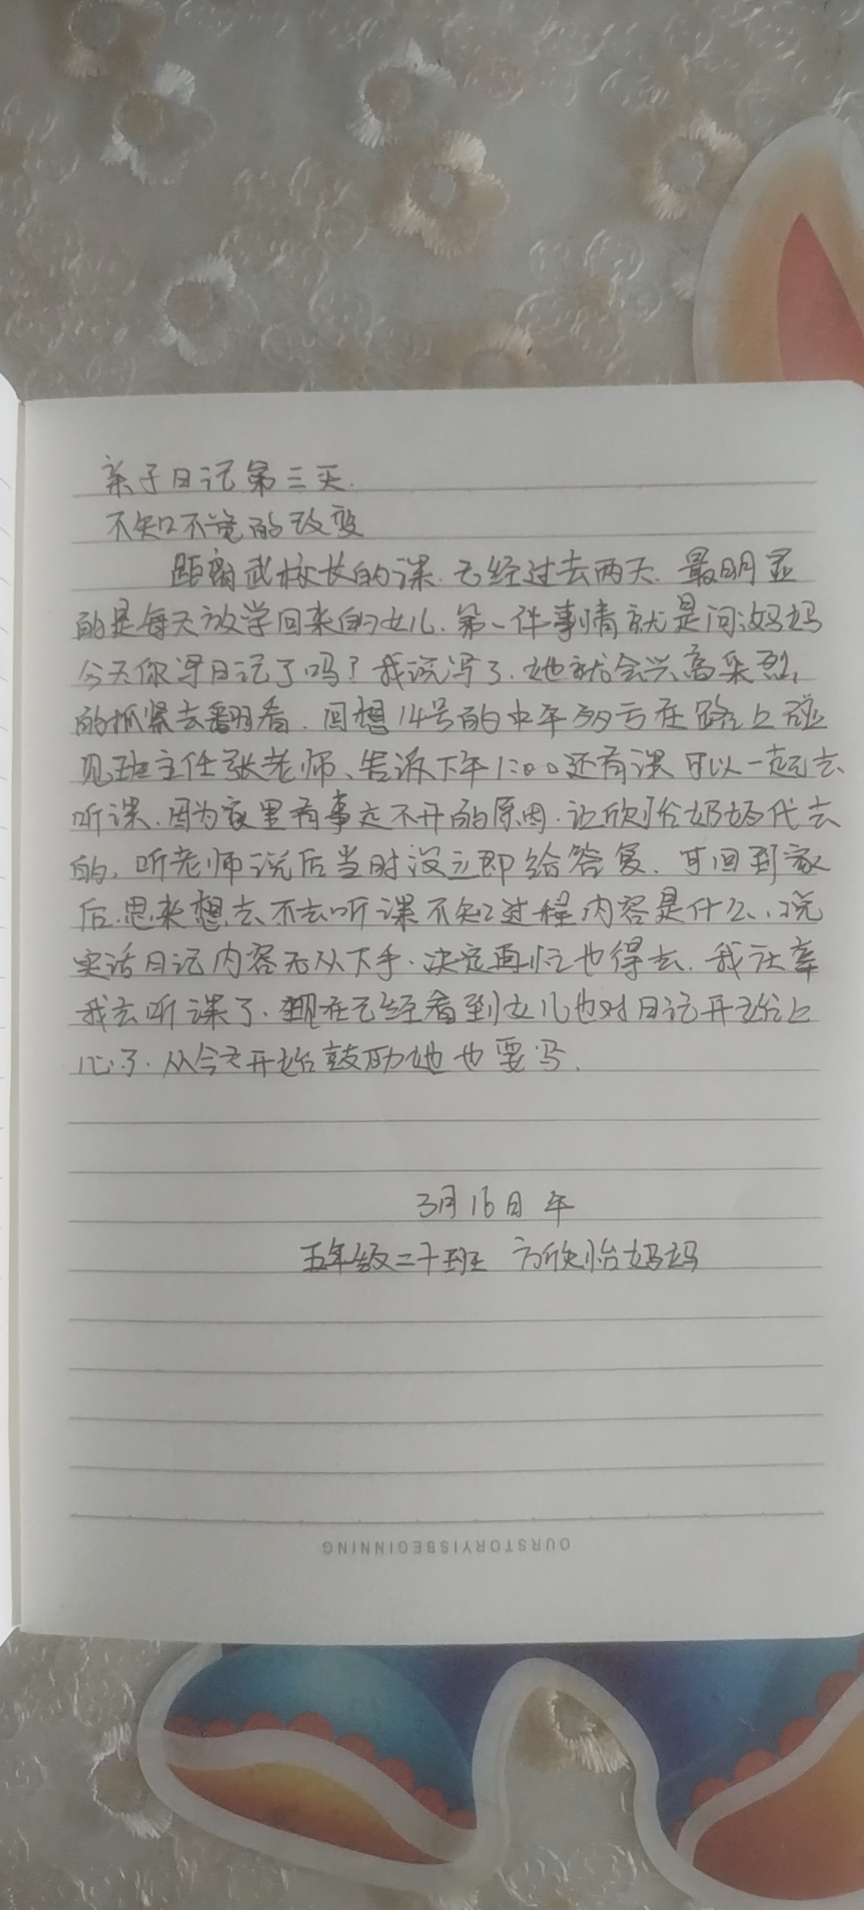 亲子日记第三天.
不知不觉的改变
距离武校长的课.已经过去两天.最明显
的是每天放学回来的女儿.第一件事情就是问妈妈
今天你写日记了吗?我说写了.她就会兴高采烈,
的抓紧去翻看.回想14号的中午多亏在路上碰
见班主任张老师、告诉下午1:00还有课可以一起去
听课.因为家里有事走不开的原因.让欣怡奶奶代去
的,听老师说后当时没立即给答复.可回到家
后.思来想去、不去听课不知过程内容是什么、说
实话日记内容无从下手.决定再忙也得去.我庆幸
我去听课了.现在已经看到女儿也对日记开始上
心了.从今天开始鼓励她也要写.
3月16日 午
五年级二十班 方欣怡妈妈
OURSTORYISBEGINNING